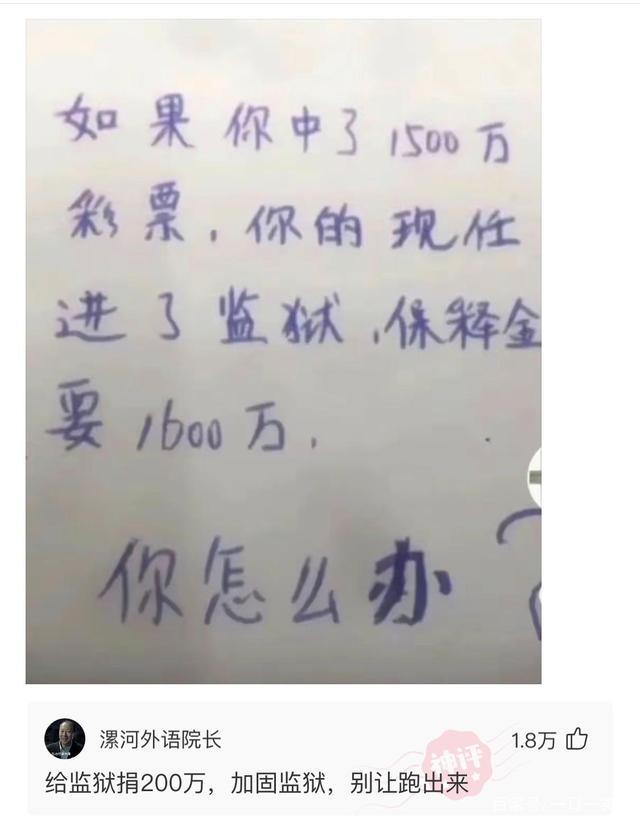 如果你中了1500万
彩票，你的现任
进了监狱，保释金
要1600万，
你怎么办
漯河外语院长
1.8万
神评
给监狱捐200万，加固监狱，别让跑出来